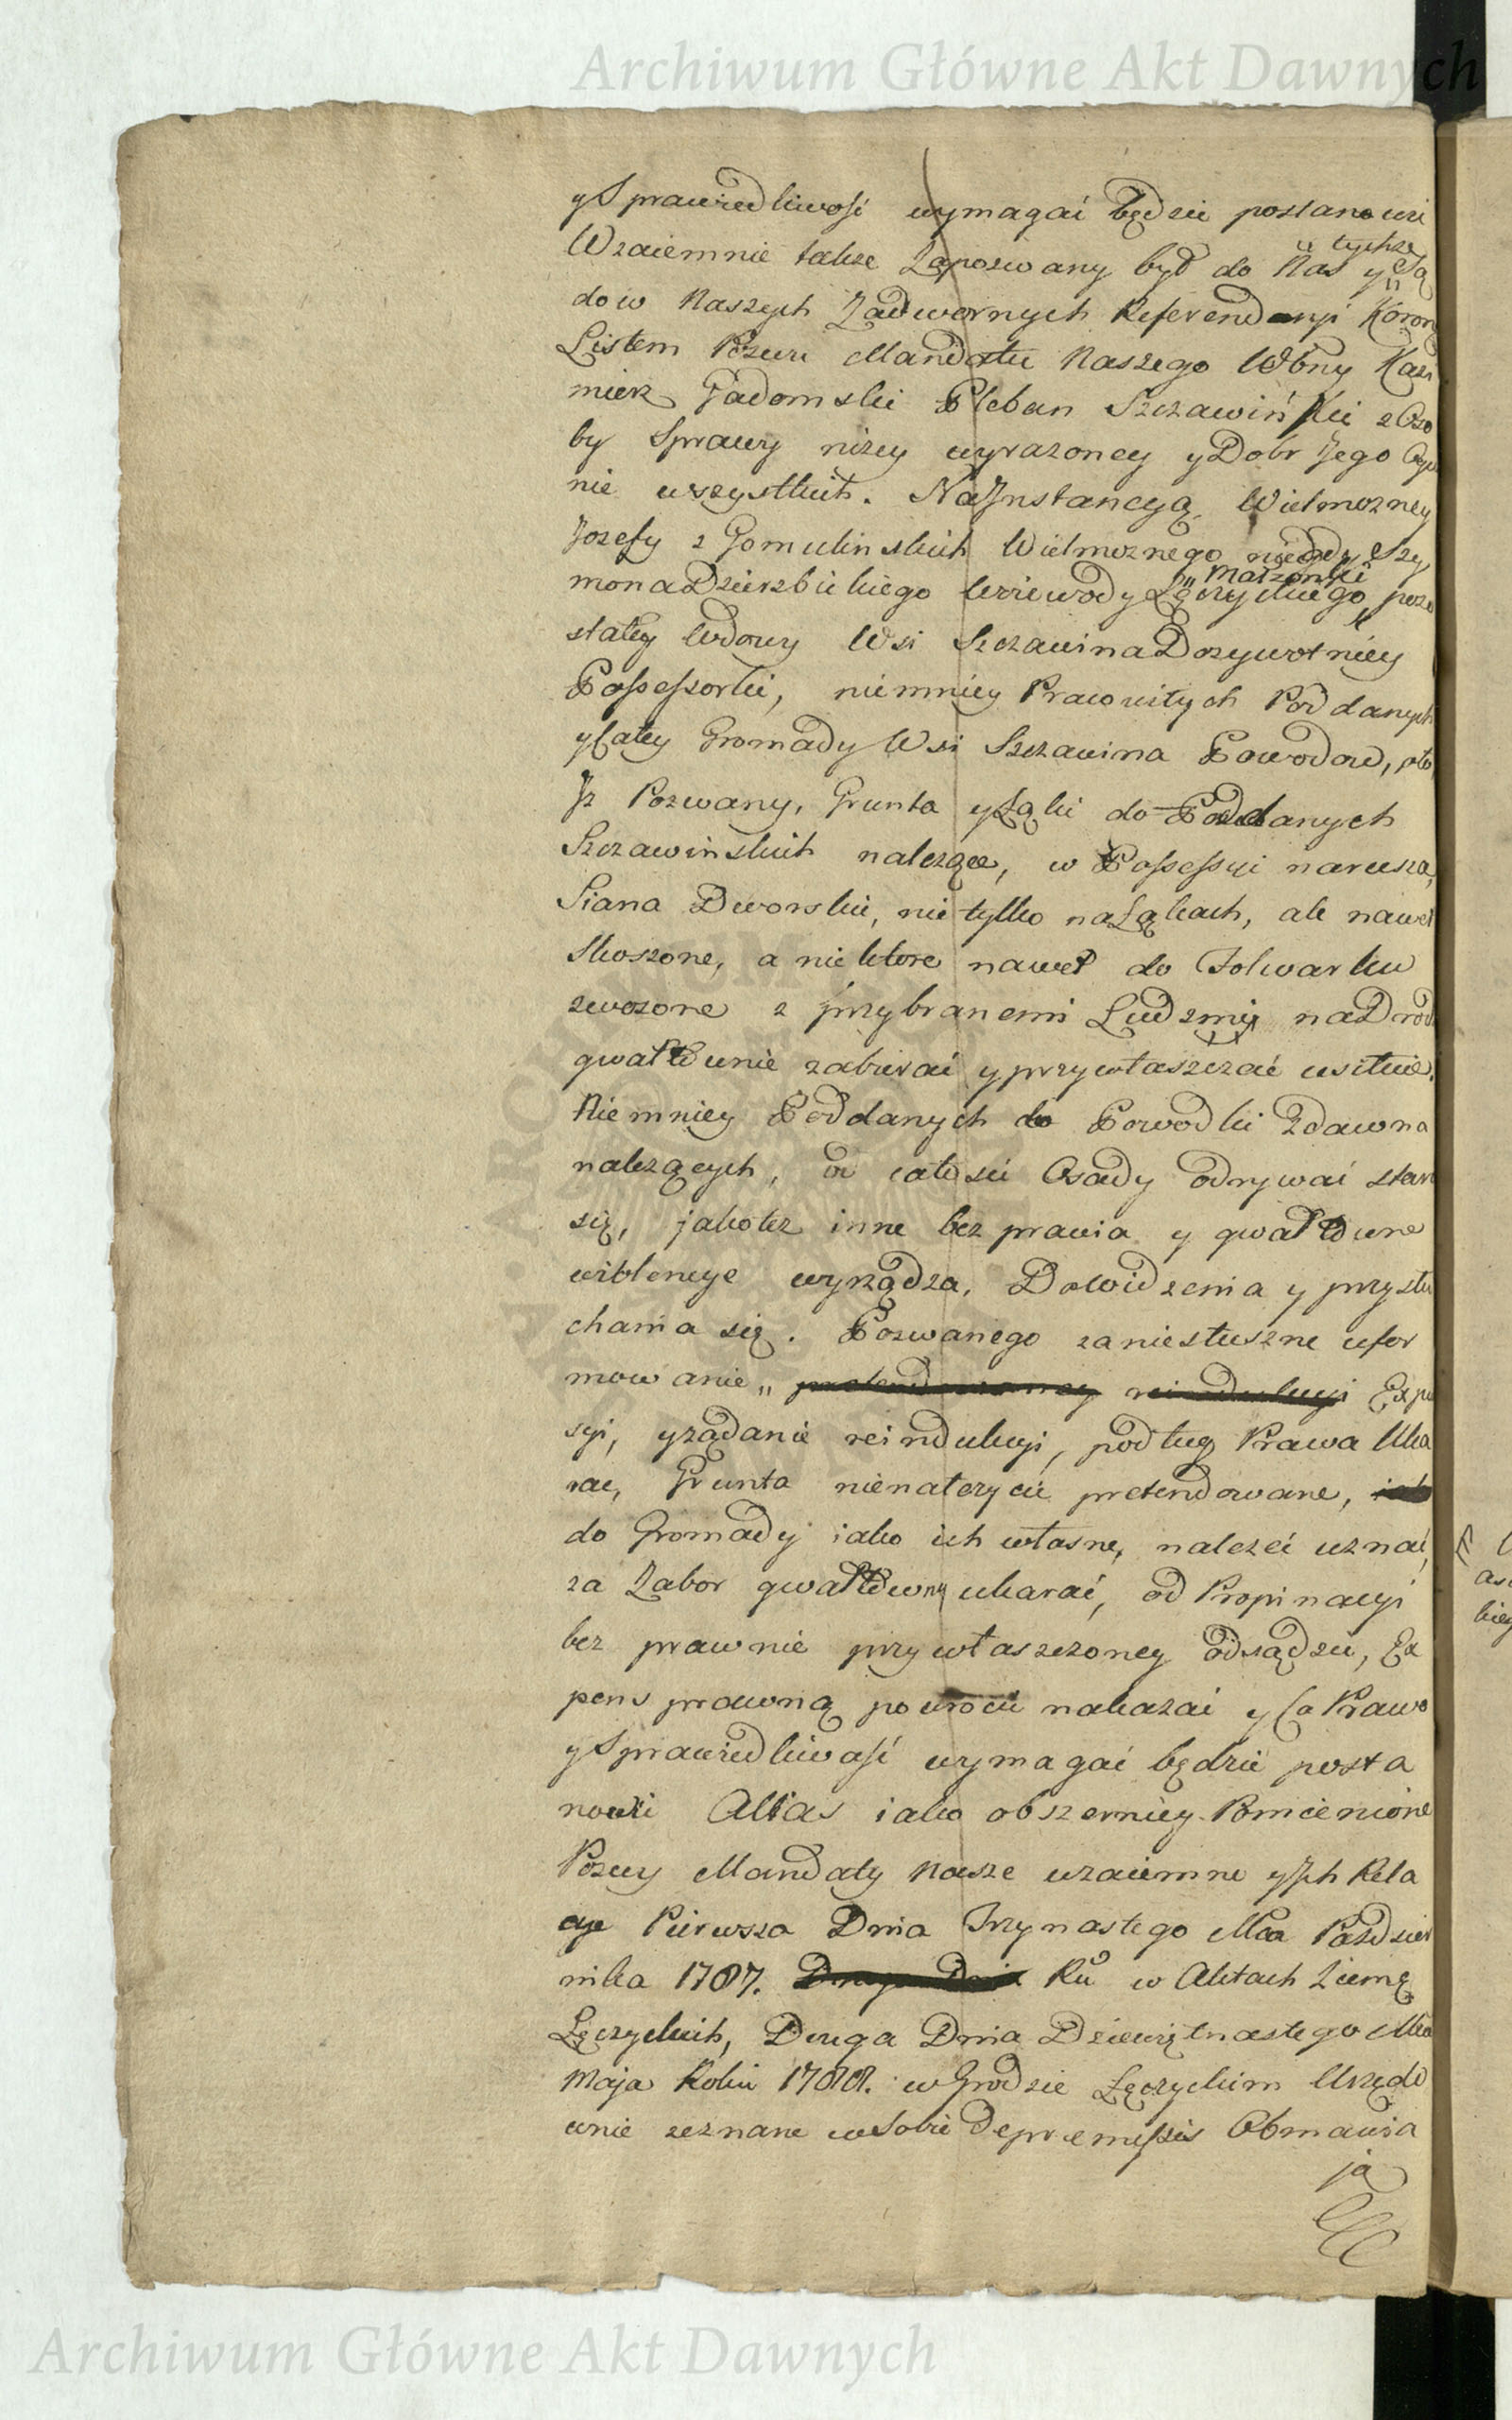 Archiwum Główne Akt Dawnych
y Sprawiedliwość wymagać będzie postanowi
Wzaiemnie także Zapozwany był do Nas y tychże Są
dow Naszych Zadwornych Referendaryi Koron
Listem Pozwu Mandatu Naszego Wbny Kazi
mierz Gadomski Pleban Szczawiński z Oso
by Sprawy niżey wyrażoney y Dobr Jego
nie wszystkich. Na Jnstancyą Wielmożney
Jozefy z Gomulinskich Wielmożnego niegdy Szy
mona Dzierzbickiego Woiewody Łęczyckiego Małżonki pozo
stałey Wdowy Wsi Szczawina Dożywotniey
Possessorki, niemniey Pracowitych Poddanych
y całey Gromady Wsi Szczawina Powodow, oto
Jż Pozwany, Grunta y Łąki do Poddanych
Szczawinskich należące, w Possessyi narusza,
Siana Dworskie, nie tylko na Łąkach, ale nawet
skoszone, a niektore nawet do Folwarku
zwożone z przybranemi Ludzmi na Drod
gwałtownie zabierać y przywłaszczać usiłuie.
Niemniey Poddanych do Powodki Zdawna
należących, w całości Osady odrywać stara
się, jakoteż inne bezprawia y gwałtowne
wiolencye wyrządza. Do Widzenia y przysłu
chania się. Pozwanego za niesłuszne ufor
mowanie „ pretendowaney reindukcyi Expu
syi, y żądanie reindukcyi, podług Prawa Uka
rać, Grunta nienależycie pretendowane,
do Gromady iako ich własne, należeć uznać,
za Zabor gwałtowny ukarać, od Propinacyi
bezprawnie przywłaszczoney odsądzić, Ex
pens prawną powrocić nakazać y co Prawo
y Sprawiedliwość wymagać będzie posta
nowić Alias iako obszerniey Pomienione
Pozwy Mandaty Nasze wzaiemne y Jch Rela
cye Pierwsza Dnia Trzynastego Mca Paździer
nika 1787. Druga Dnia Ru w Aktach Ziemą
Łęczyckich, Druga Dnia Dziewiętnastego Mca
Maja Roku 1788. w Grodzie Łęczyckim Urzędo
wnie zeznane w Sobie de præmissis Obmawia
ją
Archiwum Główne Akt Dawnych